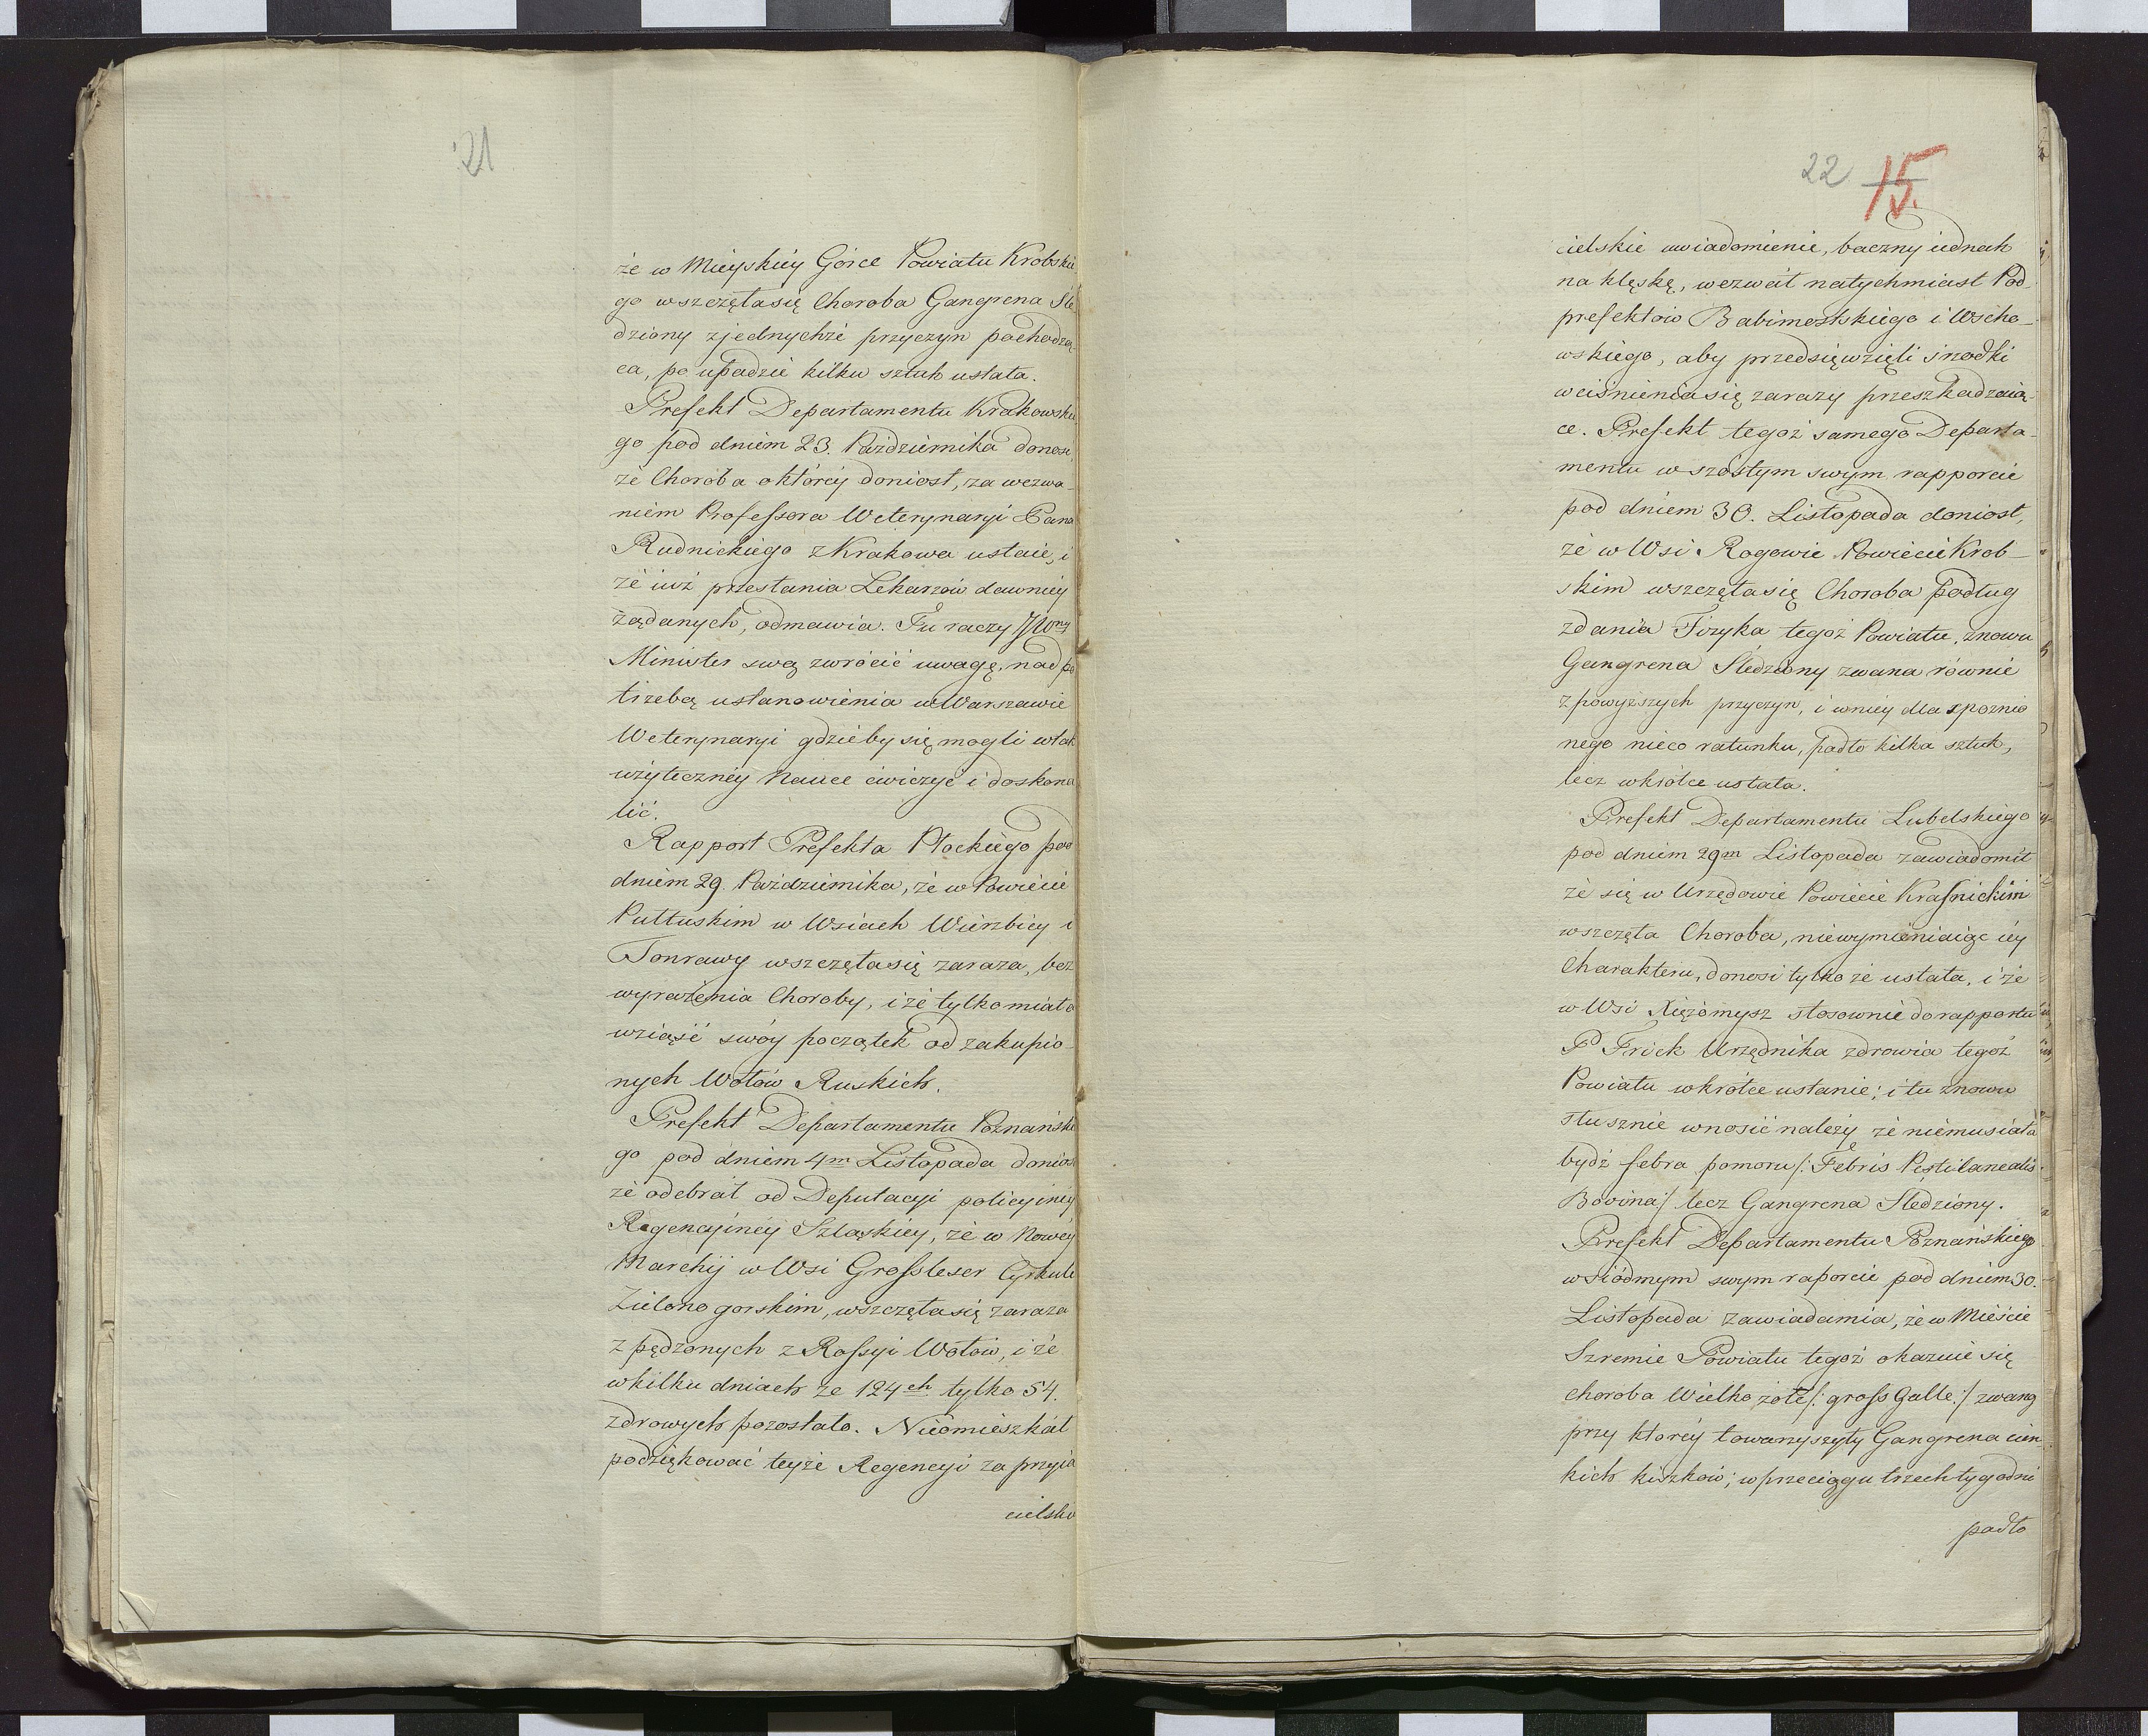 21
że w Mieyskiey Górce Powiatu Krobskie
go wszczęła się Choroba Gangrena Śle
dziony z jednychże przyczyn pochodzą
ca, po upadzie kilku sztuk ustała.
Prefekt Departamentu Krakowskie
go pod dniem 23. Października donosi,
że Choroba o któréy doniosł, za wezwa-
niem Professora Weterynaryi Pana
Rudnickiego z Krakowa ustaie, i
że iuż przesłania Lekarzów dawniey
żądanych, odmawia. Tu raczy JWny
Minister swą zwrócić uwagę, nad po
trzebą ustanowienia w Warszawie
Weterynaryi gdzieby się mogli w tak
użyteczney Nauce ćwiczyć i doskona
lić.
Rapport Prefekta Płockiego pod
dniem 29. Października, że w Powiecie
Pułtuskim w Wsiach Wierzbicy i
Tonrawy wszczęła się zaraza, bez
wyrażenia Choroby, i że tylko miała
wziąść swóy początek od zakupio-
nych Wołów Ruskich.
Prefekt Departamentu Poznańskie
go pod dniem 4m Listopada doniósł
że odebrał od Deputacyi policyiney
Regencyiney Szląskiey, że w Nowéy
Marchij w Wsi Grossleser Cyrkule
Zielono gorskim, wszczęła się zaraza
z pędzonych z Rossyi Wołów, i że
w kilku dniach ze 124ch tylko 54.
zdrowych pozostało. Nieomieszkał
podziękować teyże Regencyi za przyia
cielskie
22 15.
cielskie uwiadomienie, baczny iednak
na klęskę, wezwał natychmiast Pod-
prefektów Babimostskiego i Wscho-
wskiego, aby przedsięwzięli środki
wciśnienia się zarazy przeszkadzaią-
ce. Prefekt tegoż samego Departa-
mentu w szóstym swym rapporcie
pod dniem 30. Listopada doniosł,
że w Wsi Rogowie Powiecie Krob-
skim wszczęła się Choroba podług
zdania Fizyka tegoż Powiatu, znowu
Gangrena Śledziony zwana równie
z powyższych przyczyn, i w niey dla spoznio
nego nieco ratunku, padło kilka sztuk,
lecz wkrótce ustała.
Prefekt Departamentu Lubelskiego
pod dniem 29m Listopada zawiadomił
że się w Urzędowie Powiecie Kraśnickim
wszczęła Choroba, niewymieniaiąc iey
Charakteru, donosi tylko że ustała, i że
w Wsi Xiężomysz stosownie do rapportu
P Frick Urzędnika zdrowia tegoż
Powiatu wkrótce ustanie; i tu znowu
słusznie wnosić należy że niemusiała
bydź febra pomoru /: Febris Pestilanealis
Bovina/ lecz Gangrena Śledziony.
Prefekt Departamentu Poznańskiego
w siódmym swym raporcie pod dniem 30.
Listopada zawiadamia, że w Mieście
Szremie Powiatu tegoż okazuie się
choroba Wielko żółć /: gross Galle :/ zwaną
przy któréy towarzyszyły Gangrena cien
kich kiszków; w przeciągu trzech tygodni
padło